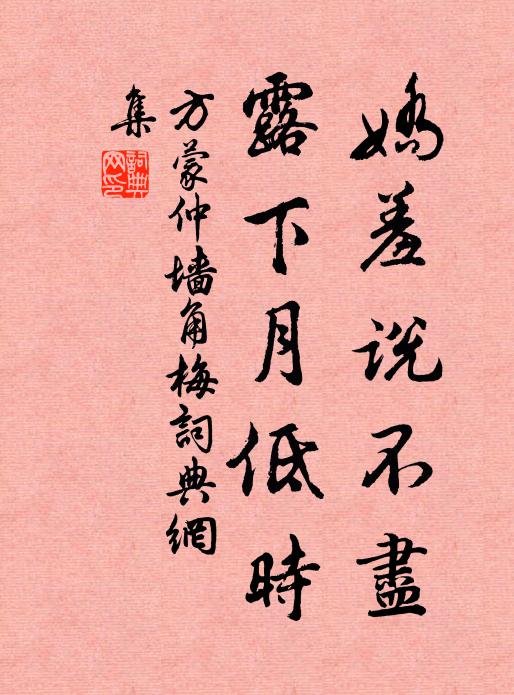 嬌羞說不盡
露下月低時
方蒙仲墻角梅詞典網
集
詞典
网印